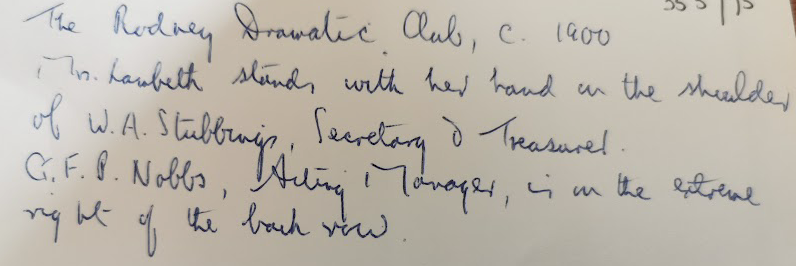 The Rodney Dramatic Club, c. 1900
Mrs. Lambeth stands with her hand on the shoulder
of W.A. Stubbings, Secretary & Treasurer.
G.F.P. Nobbs, Acting Manager, is on the extreme
right of the back row.